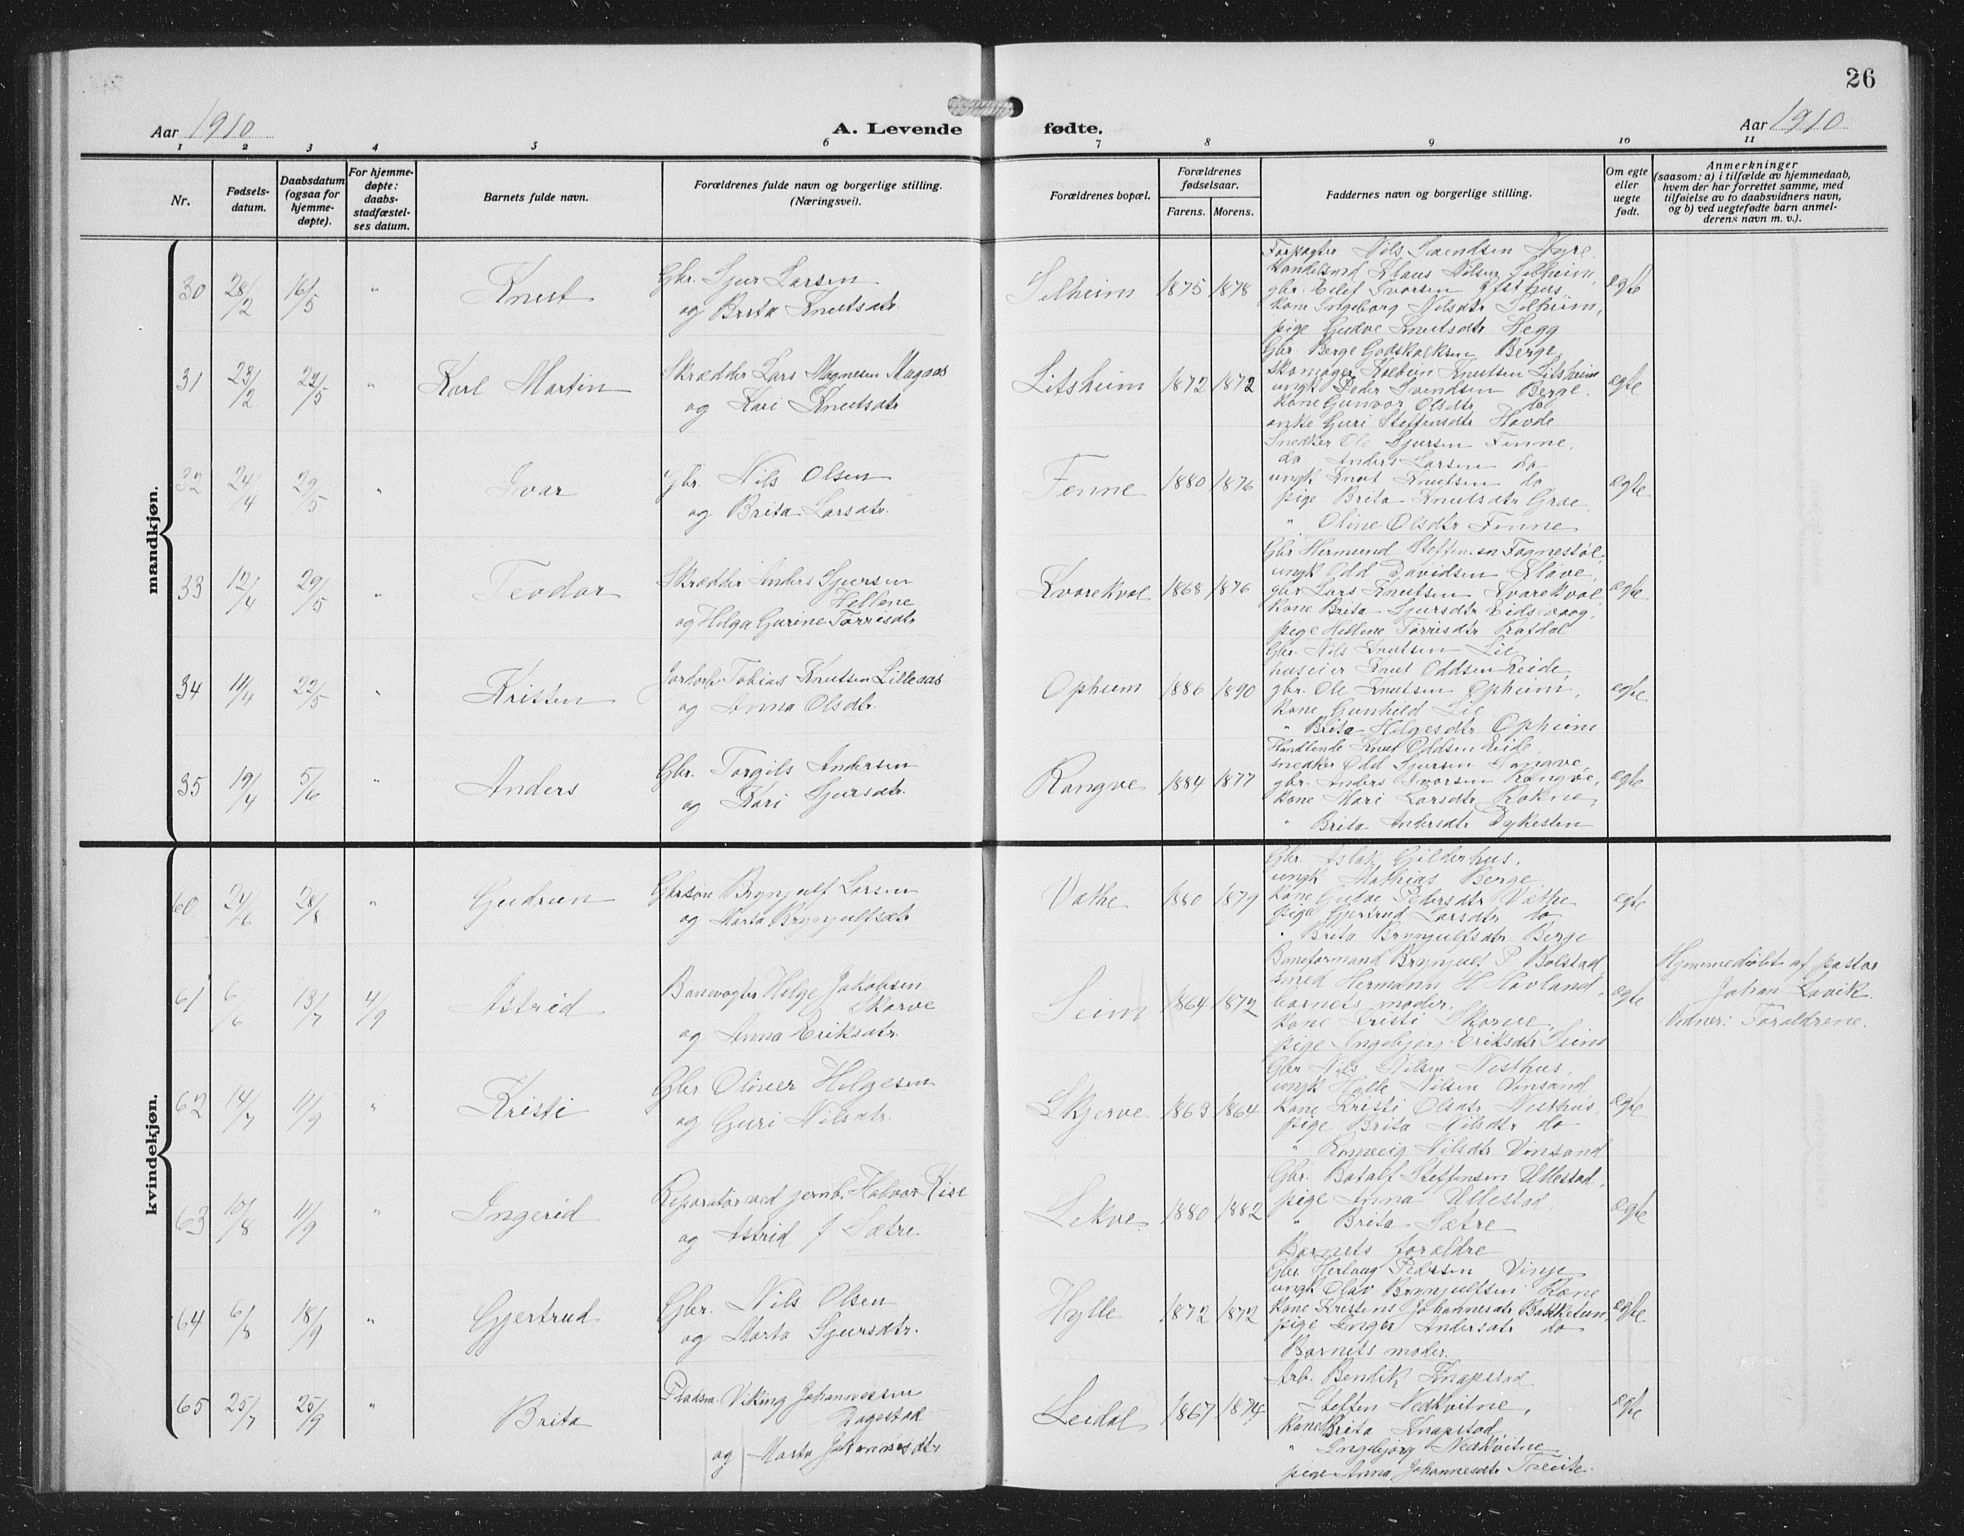 26
Aar 1910
A. Levende fødte.
Aar 1910
1 2 3 4 5 6 7 8 9 10 11
Nr.
Fødsels-
datum.
Daabsdatum
(ogsaa for
hjemme-
døpte).
For hjemme-
døpte:
daabs-
stadfæstel-
ses datum.
Barnets fulde navn.
Forældrenes fulde navn og borgerlige stilling.
(Næringsvei).
Forældrenes bopæl.
Forældrenes
fødselsaar.
Farens. Morens.
Faddernes navn og borgerlige stilling.
Om egte
eller
uegte
født.
Anmerkninger
(saasom: a) i tilfælde av hjemmedaab,
hvem der har forrettet samme, med
tilføielse av to daabsvidners navn,
og b) ved uegtefødte barn anmel-
derens navn m. v.).
mandkjøn.
30 28/2 16/5 " Knut
Gbr. Sjur Larsen
og Brita Knutsdtr.
Selheim 1875 1878
Forpagter Nils Svendsen Dyre
Handelsmd Klaus Nilsen Selheim,
gbr. Eilef Ivarsen Flathus,
kone Ingeborg Nilsdtr Selheim,
pige Gudve Knutsdtr Hegg
egte
31 23/2 22/5 " Karl Martin
Skrædder Lars Magnesen Mugaas
og Kari Knutsdtr
Litsheim 1872 1872
Gbr Berge Godskalksen Berge,
Skomager Kolbein Knutsen Litsheim
ungk Peder Svendsen Berge.
kone Gunvor Olsdtr do
enke Guri Steffensdtr Hovde
egte
32 24/4 29/5 " Ivar
Gbr. Nils Olsen
og Brita Larsdtr.
Fenne 1880 1876
Snedker Ole Sjursen Fenne,
do Anders Larsen do
ungk Knut Knutsen do
pige Brita Knutsdtr Græe,
" Oline Olsdtr Fenne
egte
33 12/4 29/5 " Teodor
Skrædder Anders Sjursen
Hellene
og Helga Gurine Tørrisdtr
Kvarekval 1868 1876
Gbr Hermund Steffensen Fagnestøl,
ungk Odd Davidsen Kløve,
gbr Lars Knutsen Kvarekval,
kone Brita Sjursdtr Eidsvaag,
pige Hellene Tørrisdtr Rotdal
egte
34 11/4 22/5 " Kristen
Tobias Knutsen Lilleaas
og Anna Olsdtr.
Opheim 1886 1890
Gbr. Nils Knutsen Lie
huseier Knut Oddsen Reide,
gbr. Ole Knutsen Opheim,
kone Gunhild Lie
" Brita Helgesdtr Opheim
egte
35 19/4 5/6 " Anders
Gbr. Torgils Andersen
og Kari Sjursdtr.
Rongve 1884 1877
Handlende Knut Oddsen Eide,
snedker Odd Sjursen Sangve,
gbr. Anders Ivarsen Rongve,
kone Mari Larsdtr Rokne,
" Brita Andersdtr Dykesten
egte
kvindekjøn.
60 24/6 28/8 " Gudrun
Gbrsøn Brynjulf Larsen
og Marta Brynjulfsdtr
Væthe 1880 1879
Gbr. Aslak Gilderhus,
ungk Mathias Berge,
kone Gudve Pedersdtr Væthe
pige Gjertrud Larsdtr do
" Brita Brynjulfsdtr Berge
egte
61 6/6 13/7 4/9 Astrid
Banevogter Helge Jakobsen
Skorve
og Anna Eriksdtr.
Seim 1864 1872
Baneformand Brynjulf P Bolstad
smed Hermann H Havland,
barnets moder.
kone Kristi Skorve,
pige Ingebjorg Eriksdtr Seim
egte
Hjemmedøbt af pastor
Johan Lavik.
Vidner: Forældrene.
62 14/7 11/9 " Kristi
Gbr Oliver Helgesen
og Guri Nilsdtr.
Skjerve 1863 1864
Gbr Nils Nilsen Nesthus,
ungk Helle Nilsen Vinsand
kone Kristi Olsdtr Nesthus,
pige Brita Nilsdtr do
" Ranveig Nilsdtr Vinsand
egte
63 10/8 11/9 " Ingerid
Reparatør ved jernb. Halvor Rise
og Astrid f Sætre
Lekve 1880 1882
Gbr. Botolf Steffensen Ullestad,
pige Anna Ullestad,
" Brita Sætre
Barnets forældre
egte
64 6/8 18/9 " Gjertrud
Gbr. Nils Olsen
og Marta Sjursdtr.
Hylle 1872 1872
Gbr. Herlaug Pedersen Vinje
ungk Olav Brynjulfsen Rone
kone Kristens Johannesdtr Bakketun,
pige Inger Andersdtr do
Barnets moder.
egte
65 25/7 25/9 " Brita
Pladsm. Viking Johannessen
Dagestad
og Marta Johannesdtr
Leidal 1867 1874
Arb. Bendik Knapstad
Steffen Nedkvitne,
kone Brita Knapstad,
" Ingebjørg Nedkvitne
pige Anna Johannesdtr Tveite.
egte